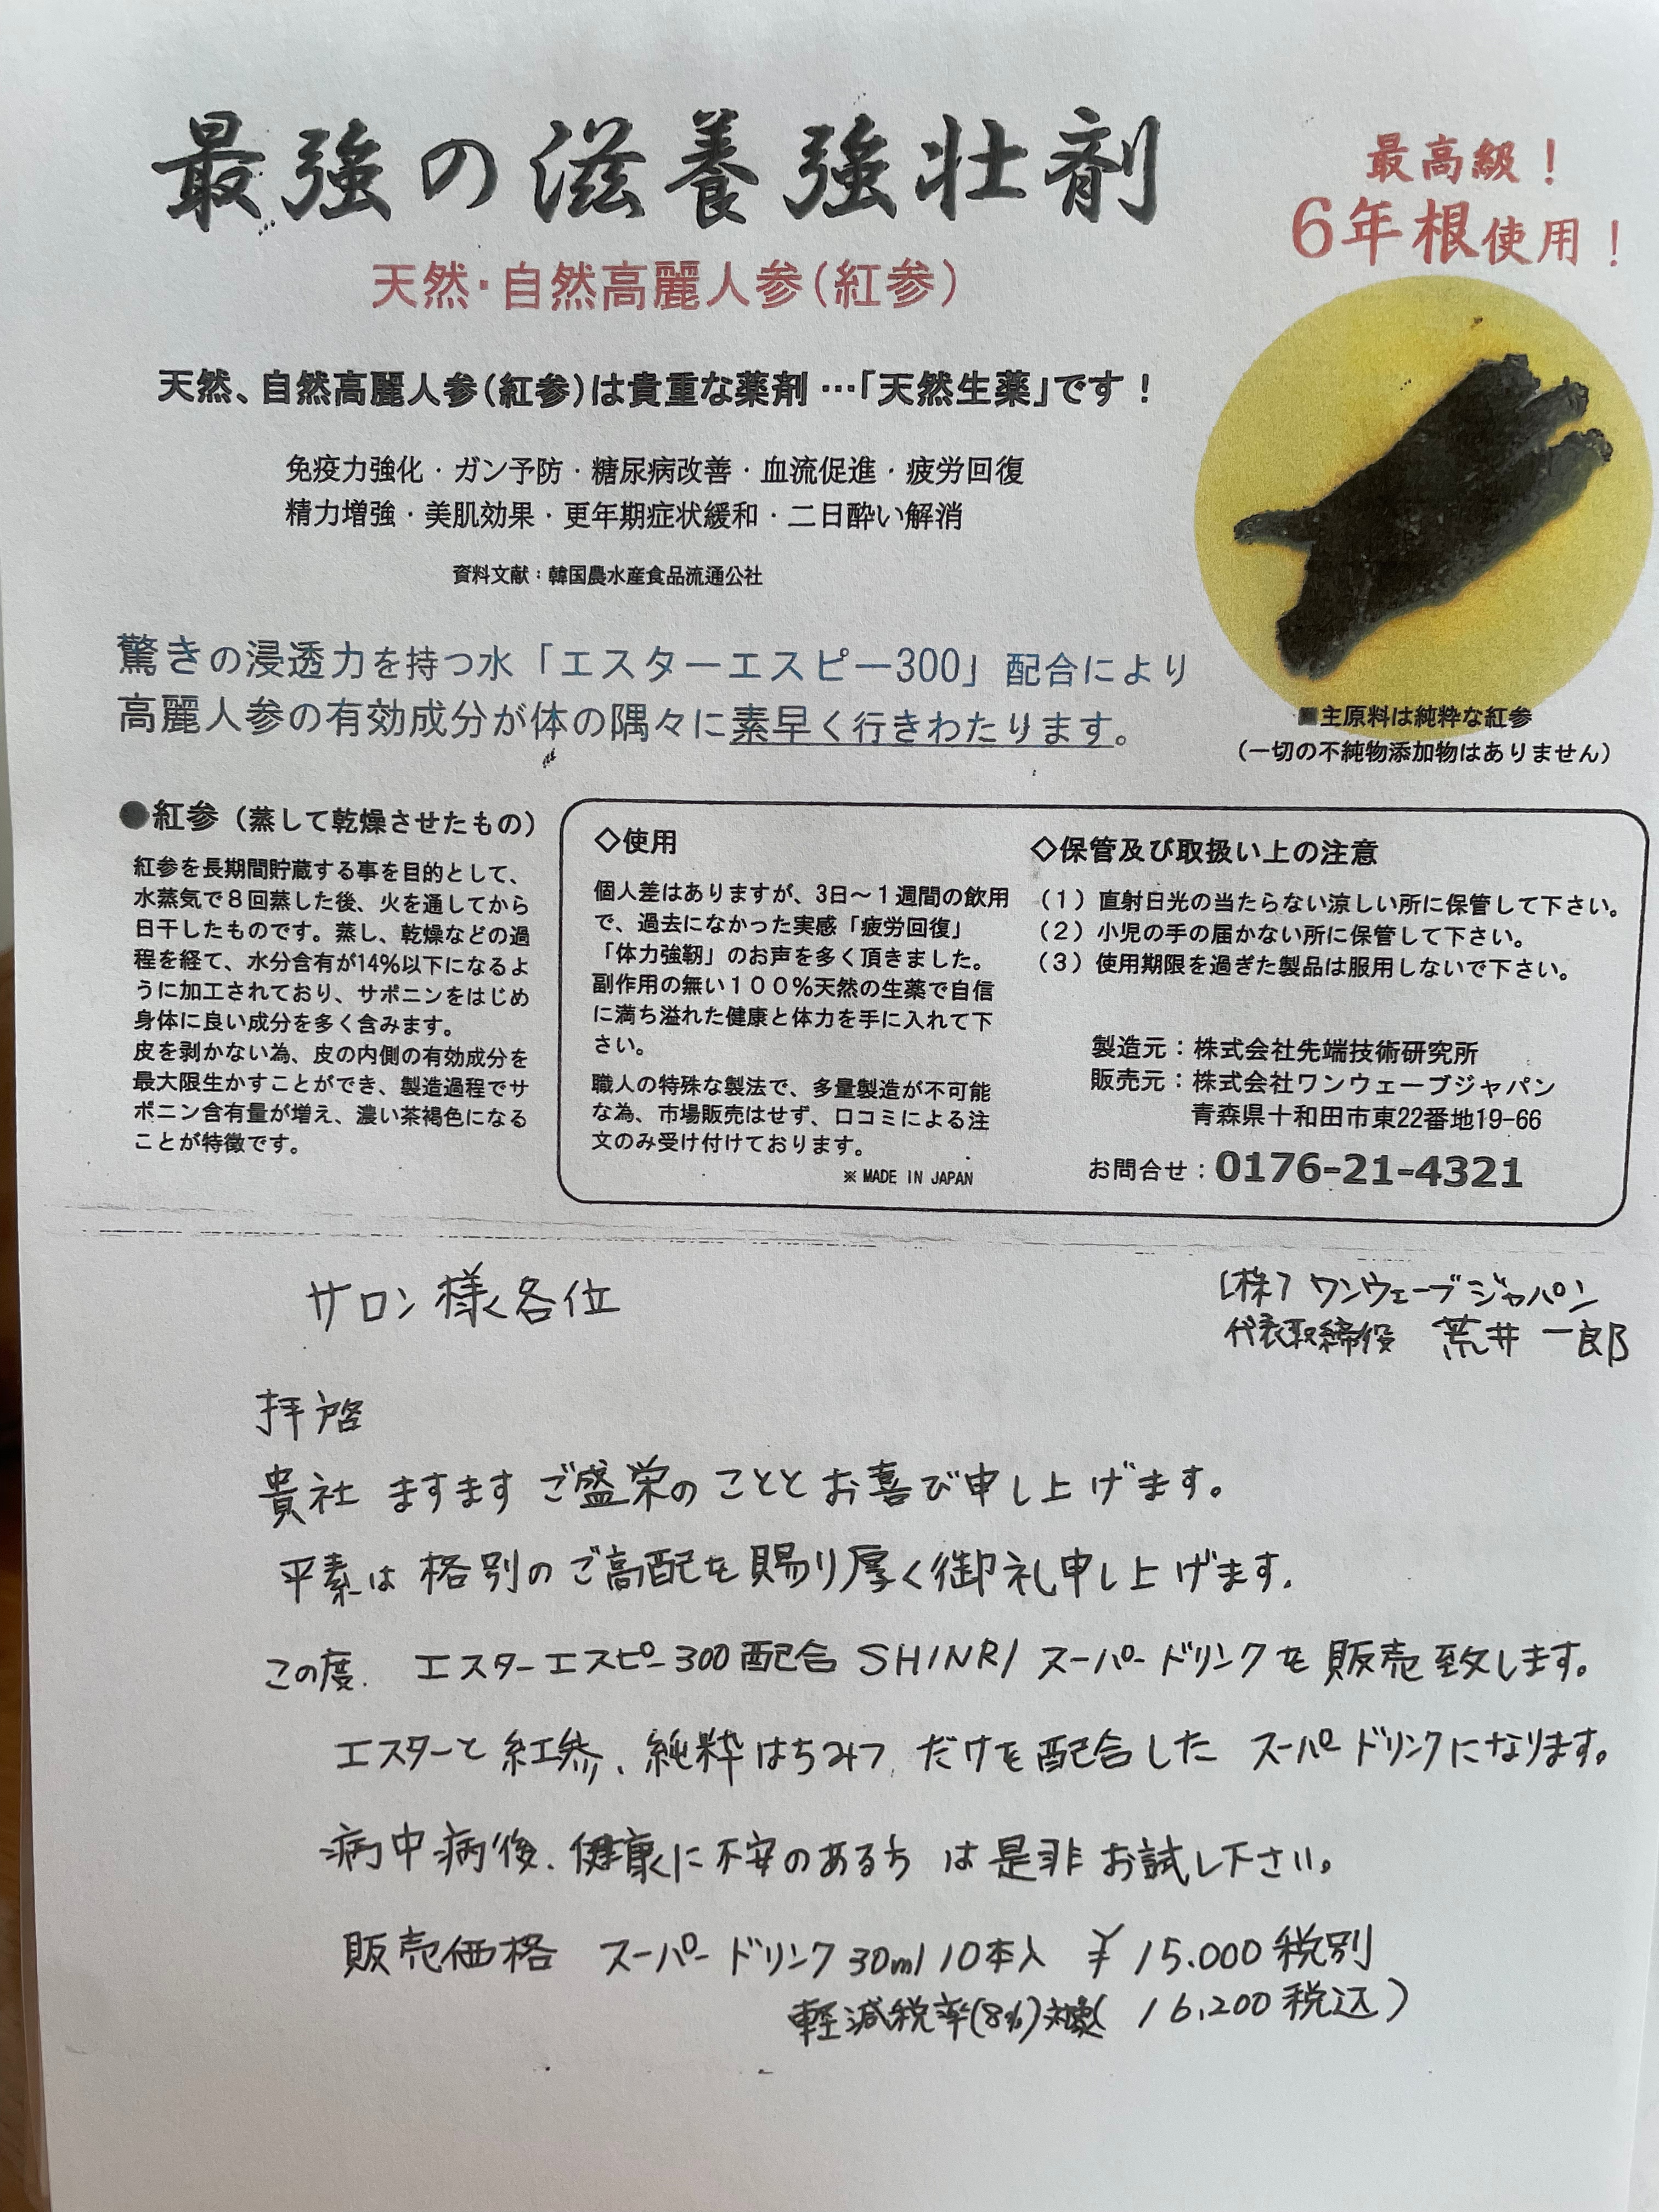 最強の滋養強壮剤
最高級!
6年根使用!
天然・自然高麗人参(紅参)
天然、自然高麗人参(紅参)は貴重な薬剤…「天然生薬」です!
免疫力強化・ガン予防・糖尿病改善・血流促進・疲労回復
精力増強・美肌効果・更年期症状緩和・二日酔い解消
資料文献:韓国農水産食品流通公社
驚きの浸透力を持つ水「エスターエスピー300」配合により
高麗人参の有効成分が体の隅々に素早く行きわたります。
■主原料は純粋な紅参
(一切の不純物添加物はありません)
●紅参(蒸して乾燥させたもの)
紅参を長期間貯蔵する事を目的として、
水蒸気で8回蒸した後、火を通してから
日干したものです。蒸し、乾燥などの過
程を経て、水分含有が14%以下になるよ
うに加工されており、サポニンをはじめ
身体に良い成分を多く含みます。
皮を剥かない為、皮の内側の有効成分を
最大限生かすことができ、製造過程でサ
ポニン含有量が増え、濃い茶褐色になる
ことが特徴です。
◇使用
個人差はありますが、3日~1週間の飲用
で、過去になかった実感「疲労回復」
「体力強靭」のお声を多く頂きました。
副作用の無い100%天然の生薬で自信
に満ち溢れた健康と体力を手に入れて下
さい。
職人の特殊な製法で、多量製造が不可能
な為、市場販売はせず、口コミによる注
文のみ受け付けております。
※ MADE IN JAPAN
◇保管及び取扱い上の注意
(1)直射日光の当たらない涼しい所に保管して下さい。
(2)小児の手の届かない所に保管して下さい。
(3)使用期限を過ぎた製品は服用しないで下さい。
製造元:株式会社先端技術研究所
販売元:株式会社ワンウェーブジャパン
青森県十和田市東22番地19-66
お問合せ:0176-21-4321
サロン様各位
(株)ワンウェーブジャパン
代表取締役 荒井 一郎
拝啓
貴社 ますます ご盛栄の こととお喜び申し上げます。
平素は 格別の ご高配を賜り厚く御礼申し上げます.
この度. エスターエスピー300配合 SHINRI スーパードリンクを販売致します。
エスターと 紅参、純粋はちみつ だけを配合した スーパードリンクになります。
病中病後. 健康に不安のある方 は是非お試し下さい。
販売価格 スーパードリンク 30ml 10本入 ¥15.000税別
軽減税率(8%)対象( 16,200税込)